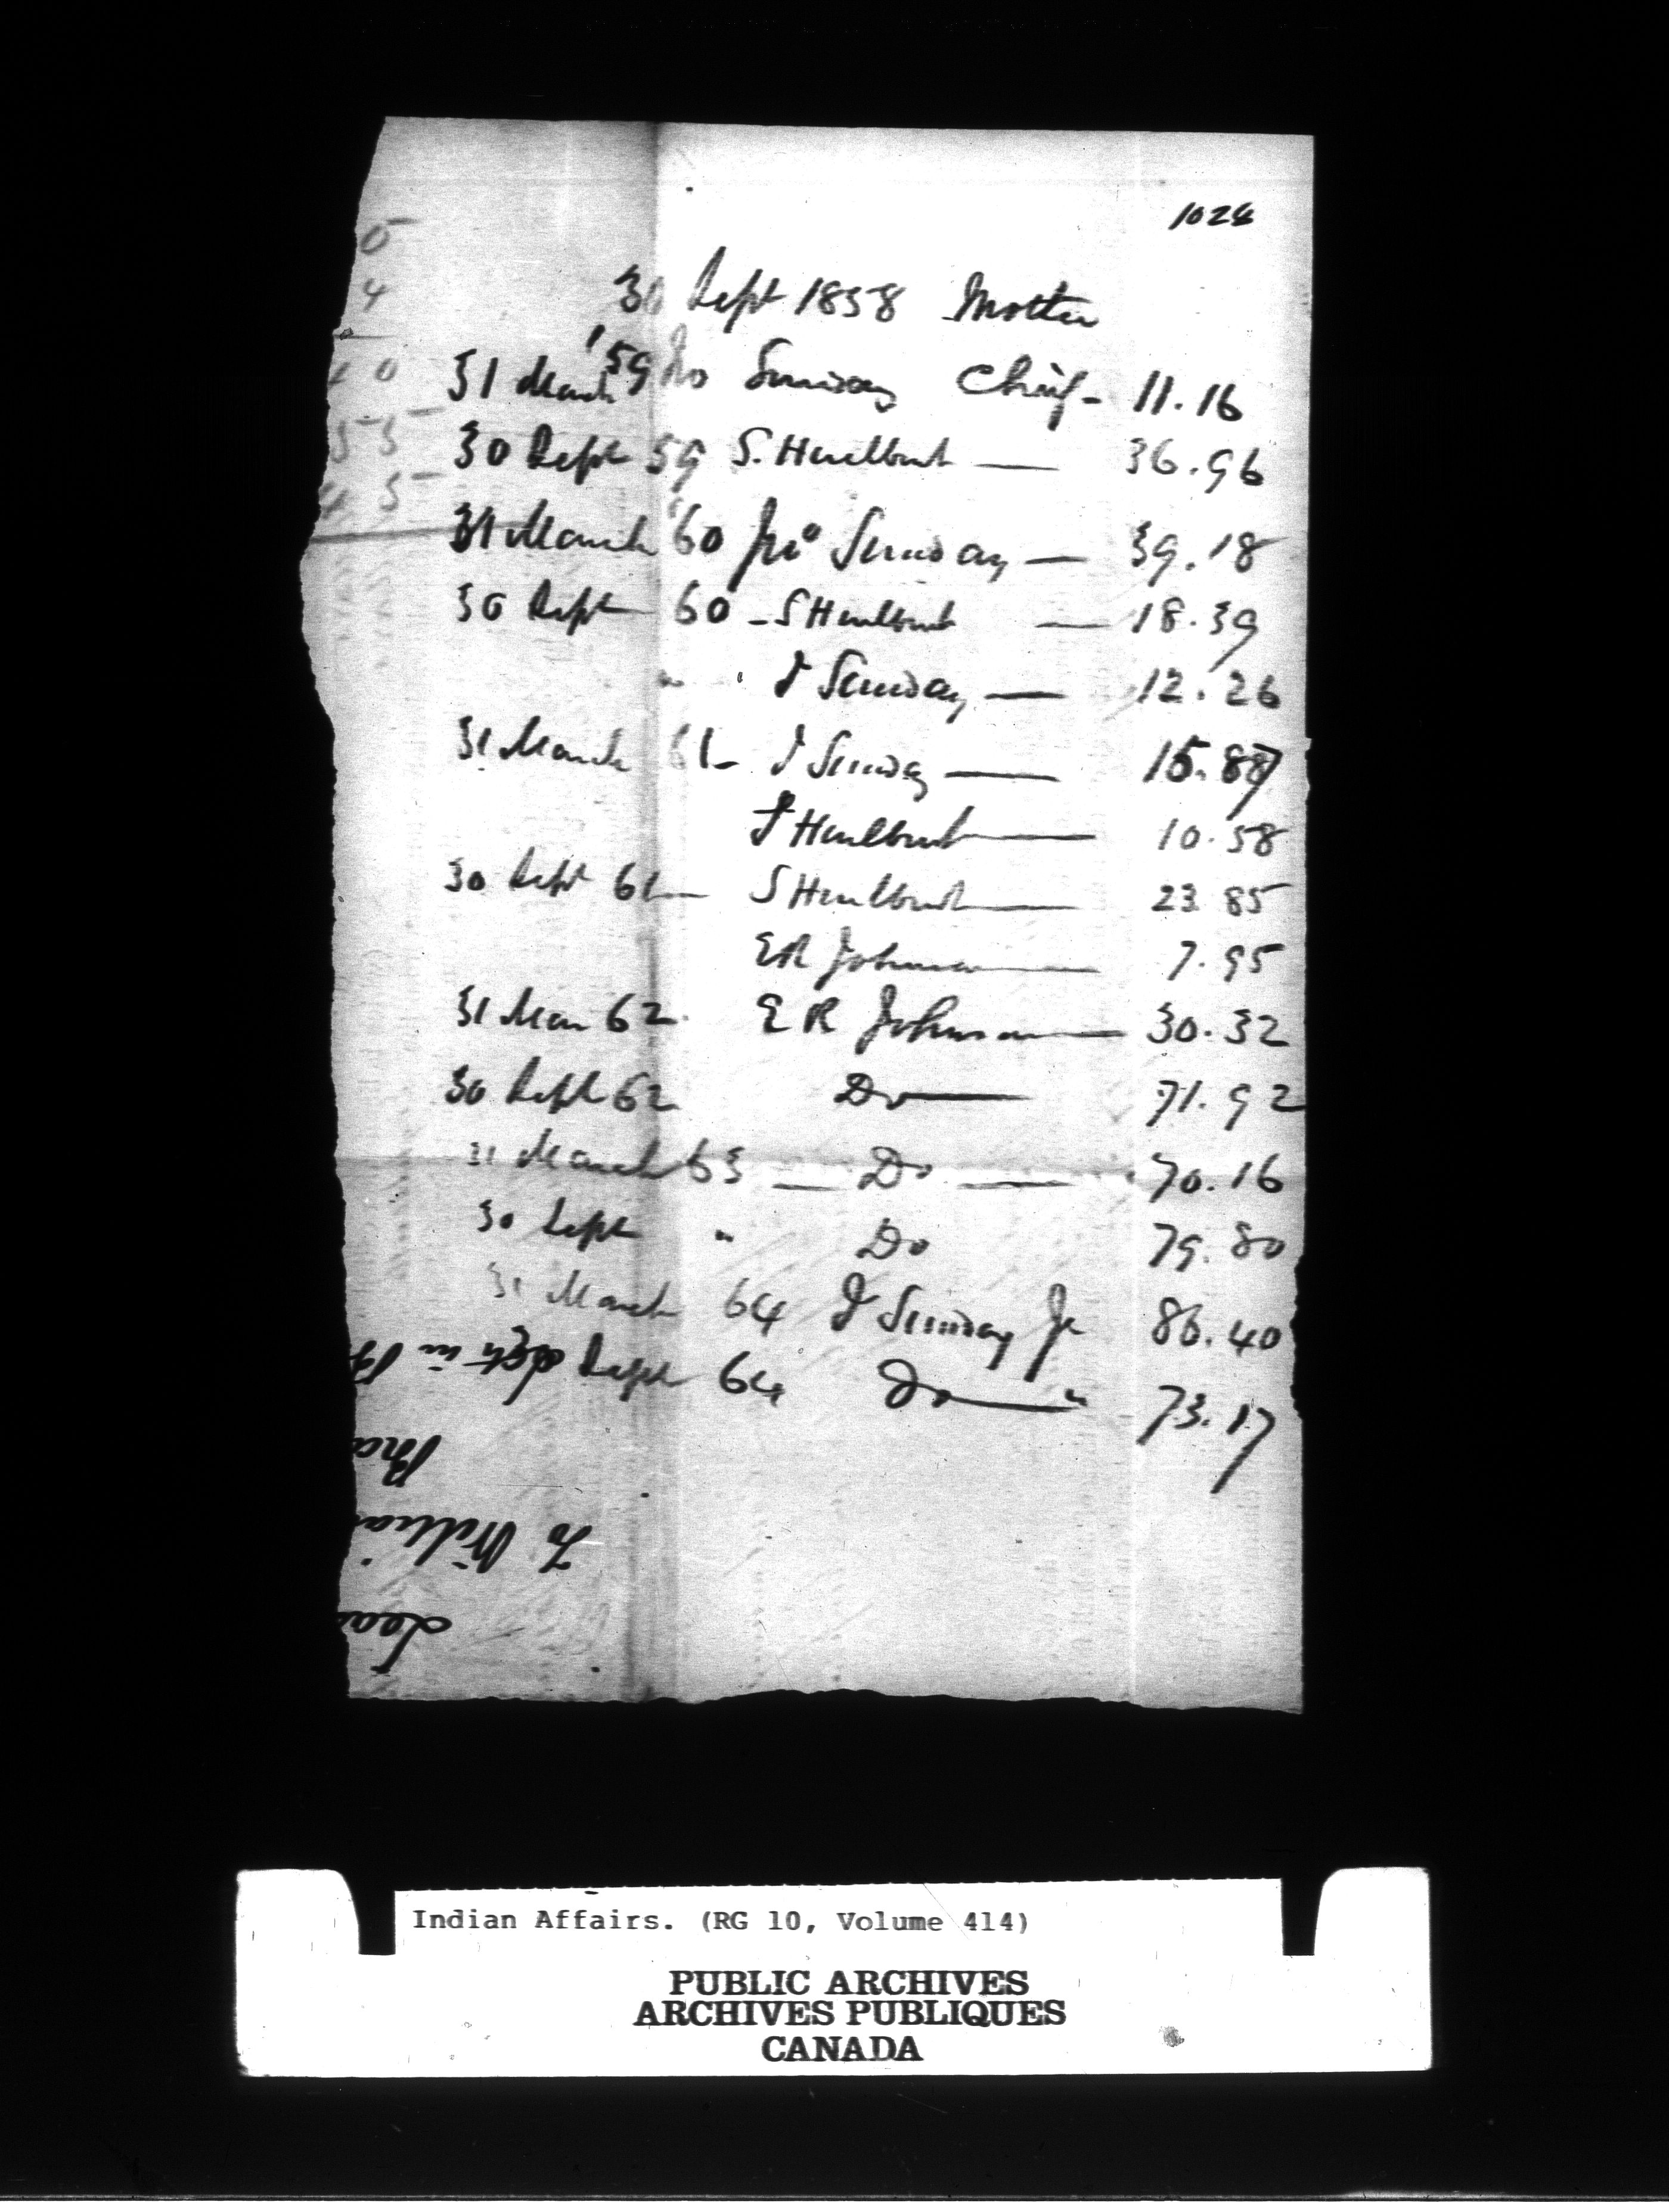 1024
30 Sept 1858 Mother
31 March '59 Jno Sunday Chief - 11.16
30 Sept 59 S. Hurlburt — 36.96
31 March '60 Jno Sunday — 39.18
30 Sept 60 - S Hurlburt — 18.39
" " J Sunday — 12.26
31 March 61 - J Sunday — 15.87
S Hurlburt — 10.58
30 Sept 61 — S Hurlburt — 23.85
ER Johnson — 7.95
31 Mar 62 E R Johnson — 30.32
30 Sept 62 Do — 71.92
31 March 63 — Do — 70.16
30 Sept " Do 79.80
31 March 64 J Sunday Jr 86.40
Sept 64 Do — " 73.17
To William
Indian Affairs. (RG 10, Volume 414)
PUBLIC ARCHIVES
ARCHIVES PUBLIQUES
CANADA